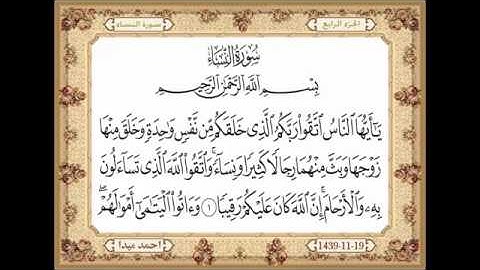 الجزء الرابع
سورة النساء
سُورَةُ النِّسَاءِ
بِسْمِ ٱللَّهِ ٱلرَّحْمَٰنِ ٱلرَّحِيمِ
يَٰٓأَيُّهَا ٱلنَّاسُ ٱتَّقُوا۟ رَبَّكُمُ ٱلَّذِى خَلَقَكُم مِّن نَّفْسٍ وَٰحِدَةٍ وَخَلَقَ مِنْهَا
زَوْجَهَا وَبَثَّ مِنْهُمَا رِجَالًا كَثِيرًا وَنِسَآءً ۚ وَٱتَّقُوا۟ ٱللَّهَ ٱلَّذِى تَسَآءَلُونَ
بِهِۦ وَٱلْأَرْحَامَ ۚ إِنَّ ٱللَّهَ كَانَ عَلَيْكُمْ رَقِيبًا ١ وَءَاتُوا۟ ٱلْيَتَٰمَىٰٓ أَمْوَٰلَهُمْ ۖ
1439-11-19
احمد ميدا